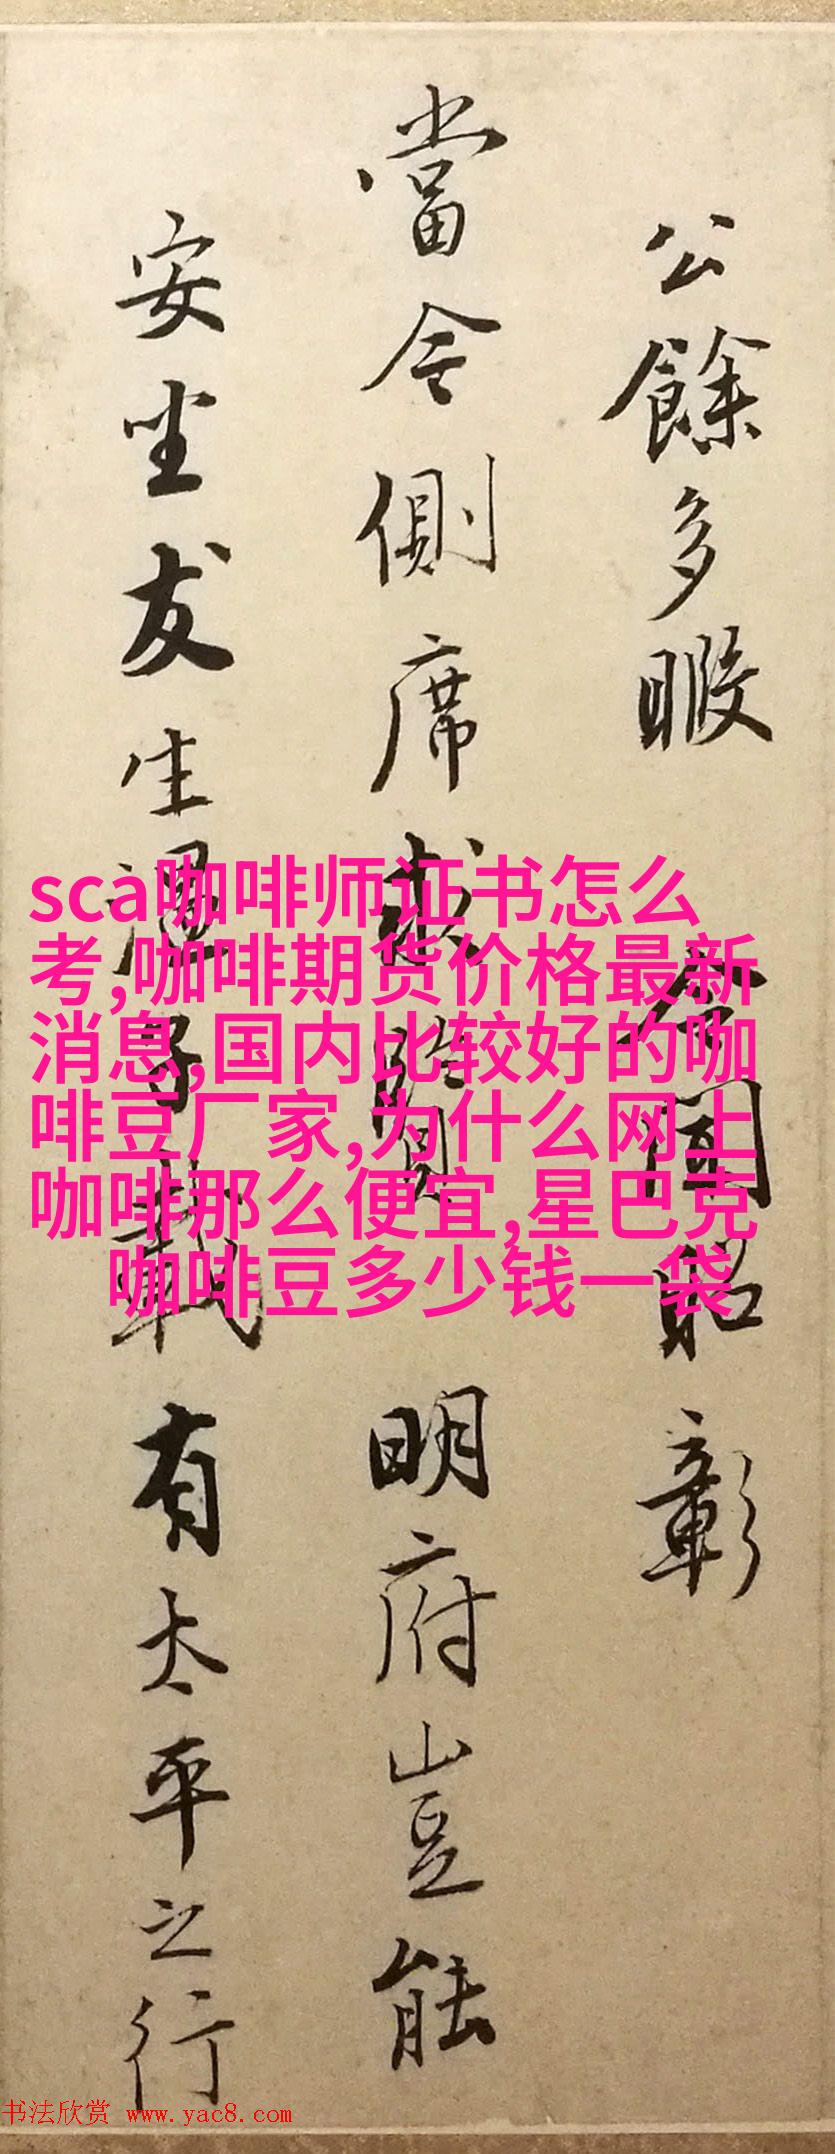 公餘多暇 令聞昭彰
當今側席求賢 明府豈能
安坐友生載有太平之行
sca咖啡师证书怎么
考,咖啡期货价格最新
消息,国内比较好的咖
啡豆厂家,为什么网上
咖啡那么便宜,星巴克
咖啡豆多少钱一袋
书法欣赏 www.yac8.com